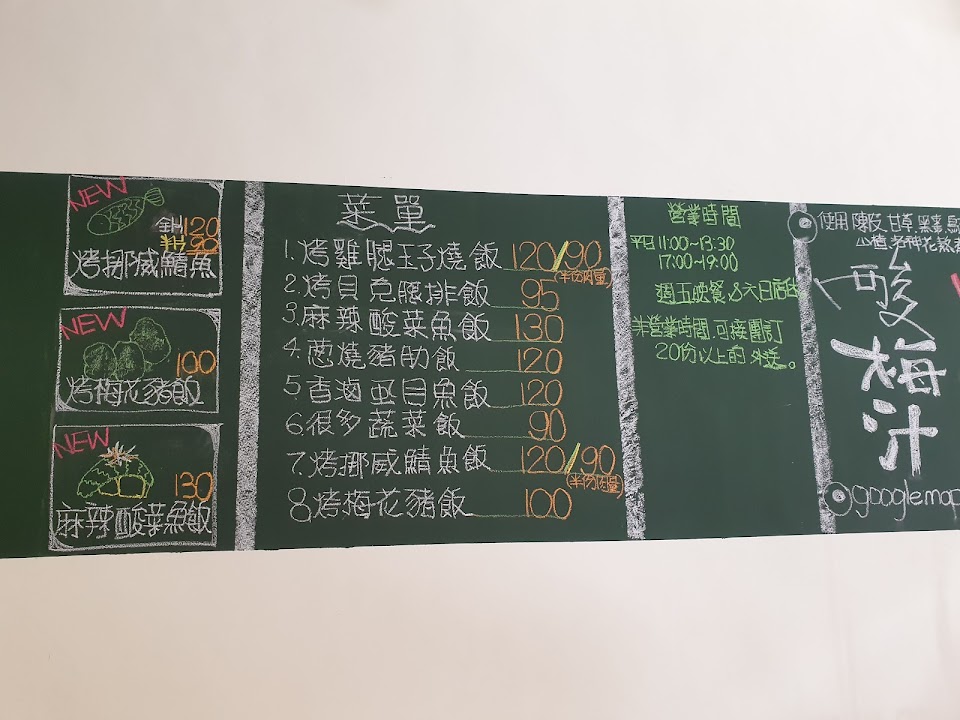 NEW
全斗120
半斗90
烤挪威鯖魚
NEW
100
烤梅花豬飯
NEW
130
麻辣酸菜魚飯
菜單
1.烤雞腿玉子燒飯 120/90
(半份肉量)
2.烤貝克腿排飯 95
3.麻辣酸菜魚飯 130
4.蔥燒豬肋飯 120
5.香滷虱目魚飯 120
6.很多蔬菜飯 90
7.烤挪威鯖魚飯 120/90
(半份肉量)
8.烤梅花豬飯 100
營業時間
平日 11:00~13:30
17:00~19:00
週五晚餐&六日店休
非營業時間.可接團訂
20份以上的外送。
使用陳皮 甘草 黑棗 烏
山楂 洛神花 熬煮
酸梅汁
google map